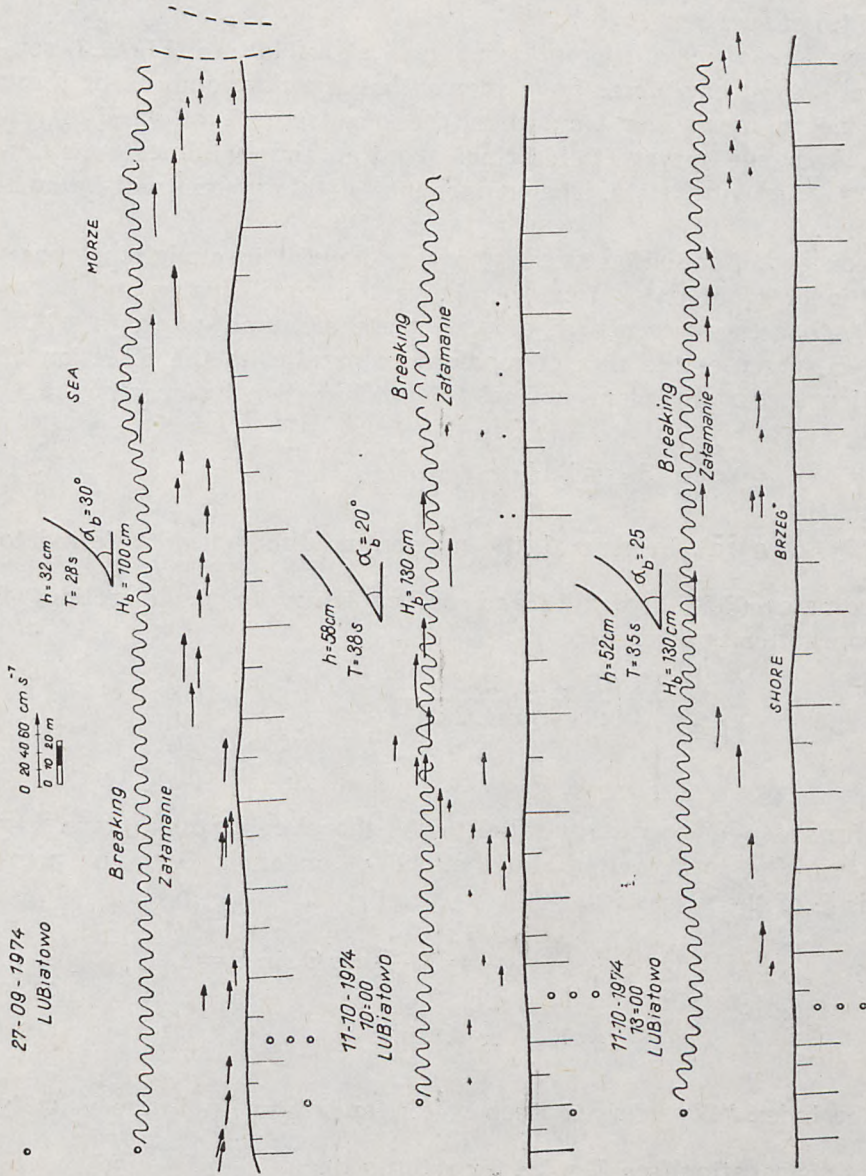 27-09-1974
LUBiatowo
0 20 40 60 cm s⁻¹
0 10 20 m
h=32 cm
T=28 s
α_b=30°
H_b=100 cm
SEA
MORZE
Breaking
Załamanie
11-10-1974
10:00
LUBiatowo
h=58cm
T=38s
α_b=20°
H_b=130 cm
Breaking
Załamanie
11-10-1974
13=00
LUBiatowo
h=52cm
T=35s
α_b=25
H_b=130cm
Breaking
Załamanie
SHORE
BRZEG